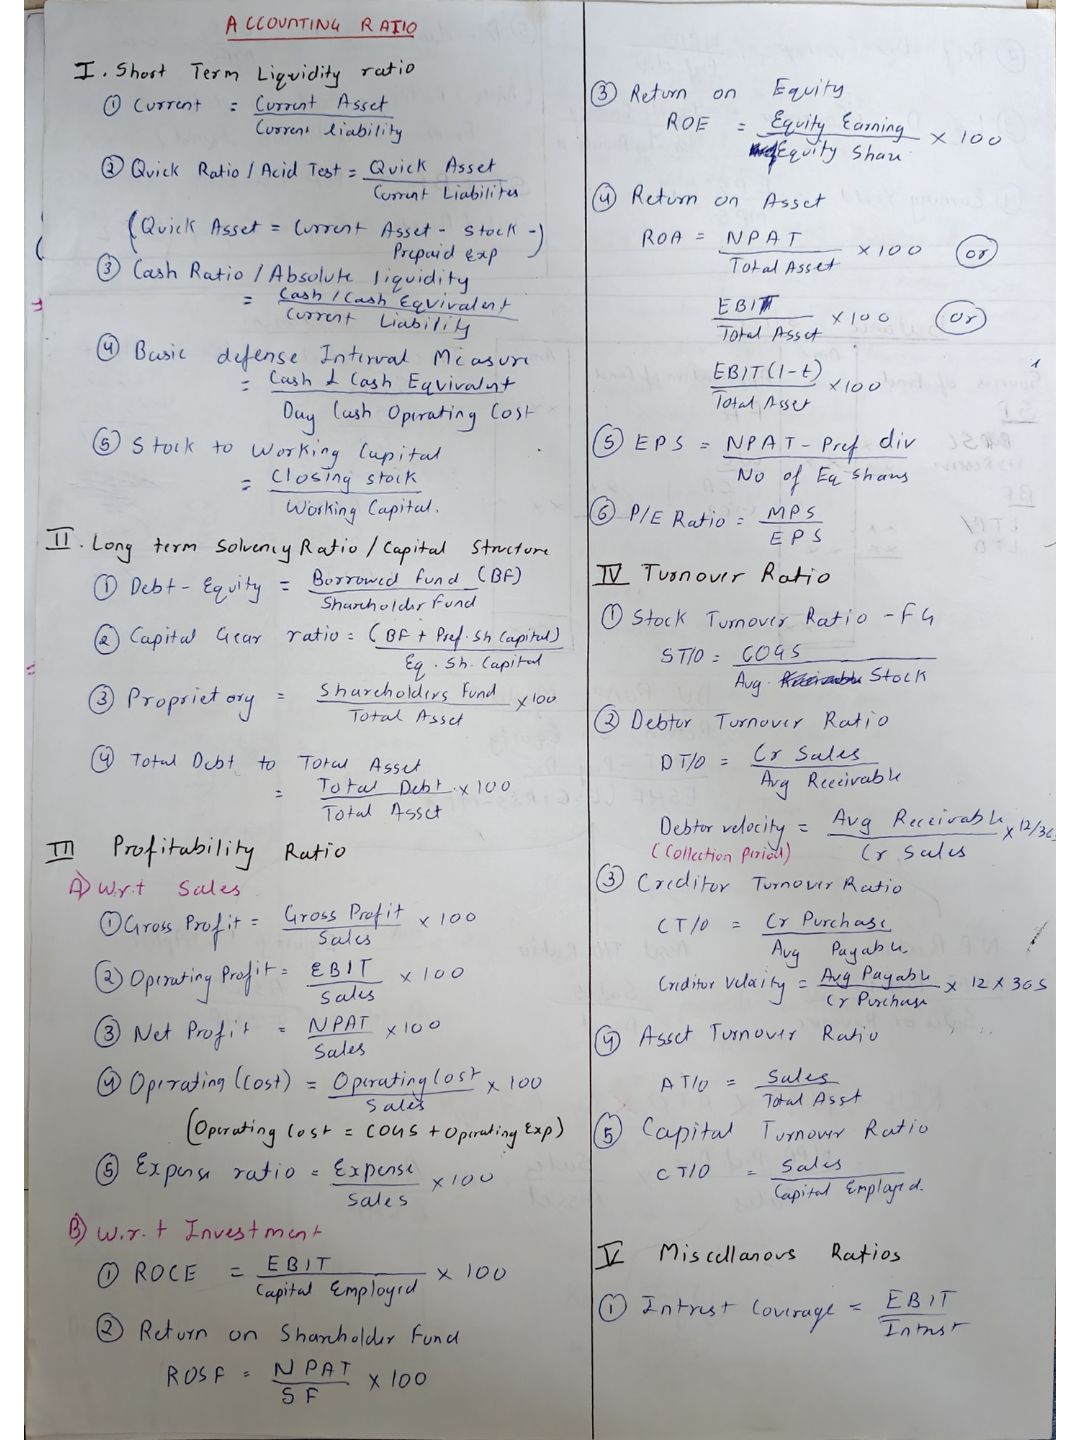 ACCOUNTING RATIO
I. Short Term Liquidity ratio
① Current = Current Asset
Current liability
② Quick Ratio / Acid Test = Quick Asset
Current Liabilites
(Quick Asset = Current Asset - Stock -)
Prepaid exp
③ Cash Ratio / Absolute liquidity
= Cash / Cash Equivalent
Current Liability
④ Basic defense Interval Measure
= Cash & Cash Equivalent
Day Cash Operating Cost
⑤ Stock to Working Capital
= Closing stock
Working Capital.
II. Long term Solvency Ratio / Capital Structure
① Debt - Equity = Borrowed fund (BF)
Shareholder Fund
② Capital Gear ratio = (BF + Pref. Sh Capital)
Eq. Sh. Capital
③ Proprietory = Shareholders Fund x 100
Total Asset
④ Total Debt to Total Asset
= Total Debt x 100
Total Asset
III Profitability Ratio
A) W.r.t Sales
① Gross Profit = Gross Profit x 100
Sales
② Operating Profit = EBIT x 100
Sales
③ Net Profit = NPAT x 100
Sales
④ Operating (Cost) = Operating Cost x 100
Sales
(Operating Cost = COGS + Operating Exp)
⑤ Expense ratio = Expense x 100
Sales
B) W.r.t Investment
① ROCE = EBIT x 100
Capital Employed
② Return on Shareholder Fund
ROSF = NPAT x 100
SF
③ Return on Equity
ROE = Equity Earning x 100
Equity Share
④ Return on Asset
ROA = NPAT x 100 (or)
Total Asset
EBIT x 100 (or)
Total Asset
EBIT(1-t) x 100
Total Asset
⑤ EPS = NPAT - Pref div
No of Eq Shares
⑥ P/E Ratio = MPS
EPS
IV Turnover Ratio
① Stock Turnover Ratio - FG
ST/O = COGS
Avg. Stock
② Debtor Turnover Ratio
DT/O = Cr Sales
Avg Receivable
Debtor velocity = Avg Receivable x 12/365
(Collection Period) Cr Sales
③ Creditor Turnover Ratio
CT/O = Cr Purchase
Avg Payable
Creditor Velocity = Avg Payable x 12 x 365
Cr Purchase
④ Asset Turnover Ratio
AT/O = Sales
Total Asst
⑤ Capital Turnover Ratio
CT/O = Sales
Capital Employed.
V Miscellanous Ratios
① Intrest Coverage = EBIT
Intrest